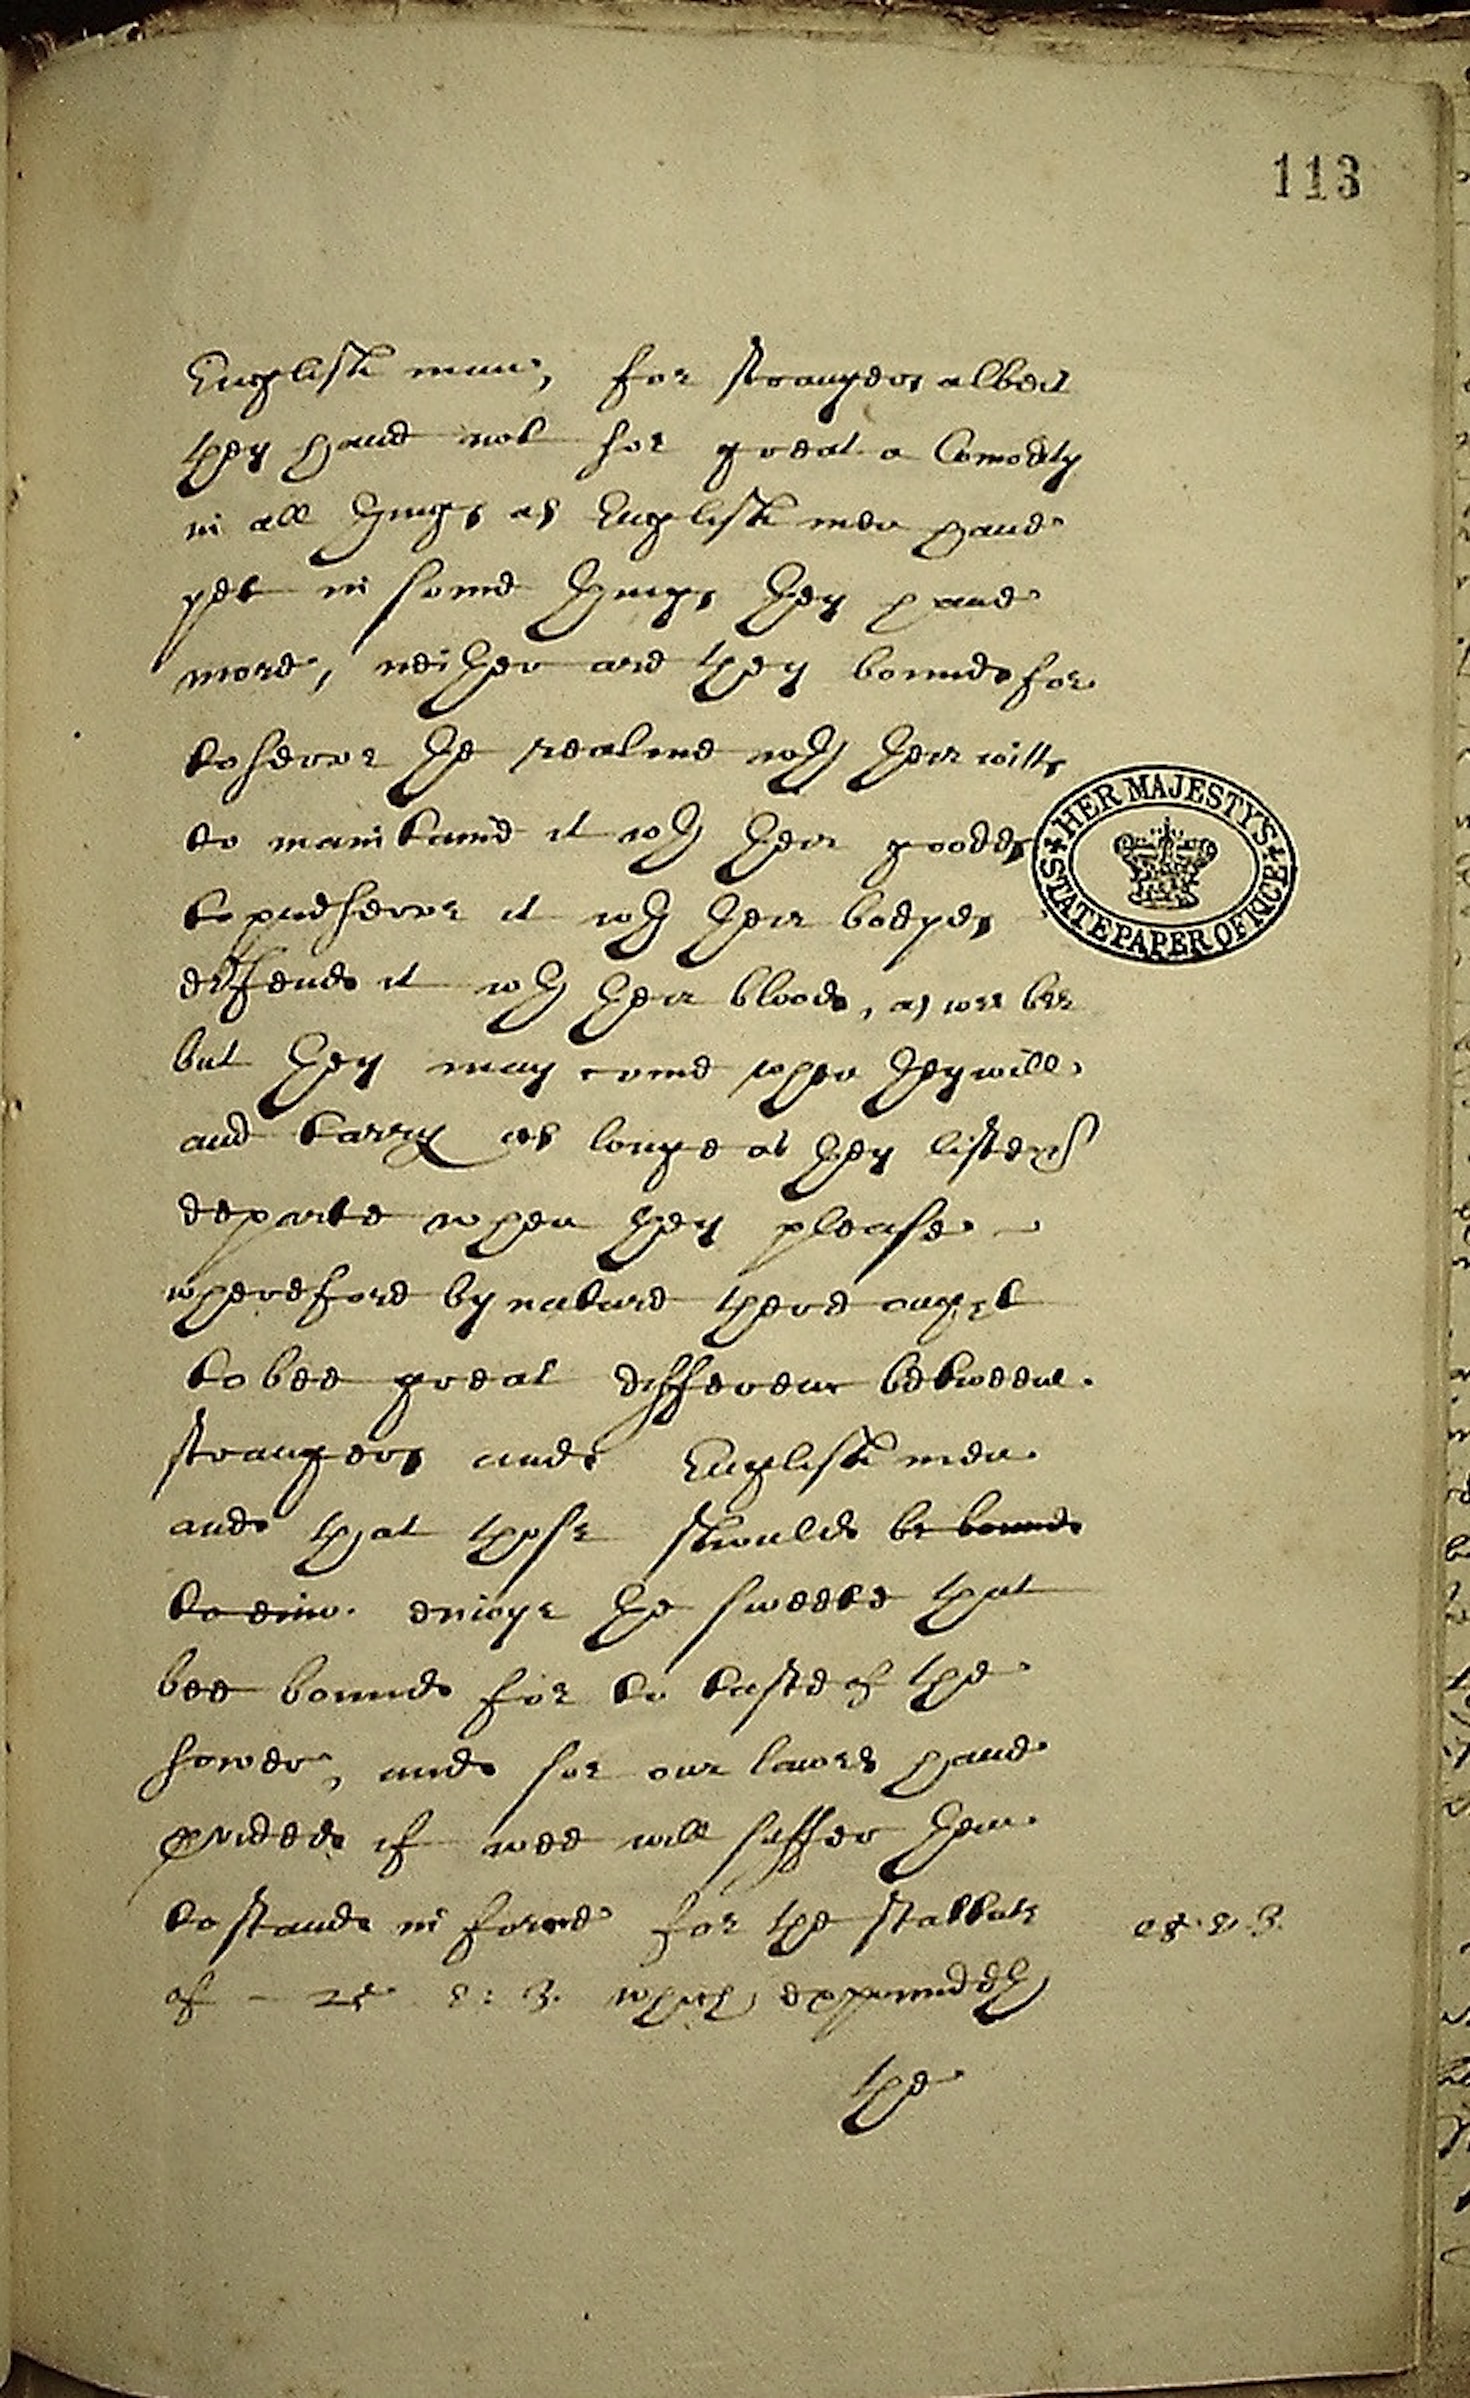 113
English man, for strangers albeit
they haue not so great a Comodity
in all thinges as English men haue
yet in some thinges they haue
more, neither are they bounde for
to serve the realme wth their witts
to maintaine it wth their goodes
to preserve it wth their bodyes
deffende it wth their bloode, as wee bee
but they may come when they will
and tarry as longe as they liste
departe when they please
wherefore by nature there ought
to bee great difference betweene
strangers and English men
and that those shoulde be bounde
to eniu. enioye the sweete that
bee bounde for to taste of the
sower, and soe our lawes haue
prouided if wee will suffer them
to stande in force for the statute
of - 25 E: 3. which expoundeth
25. E. 3.
the
HER MAJESTY'S
STATE PAPER OFFICE